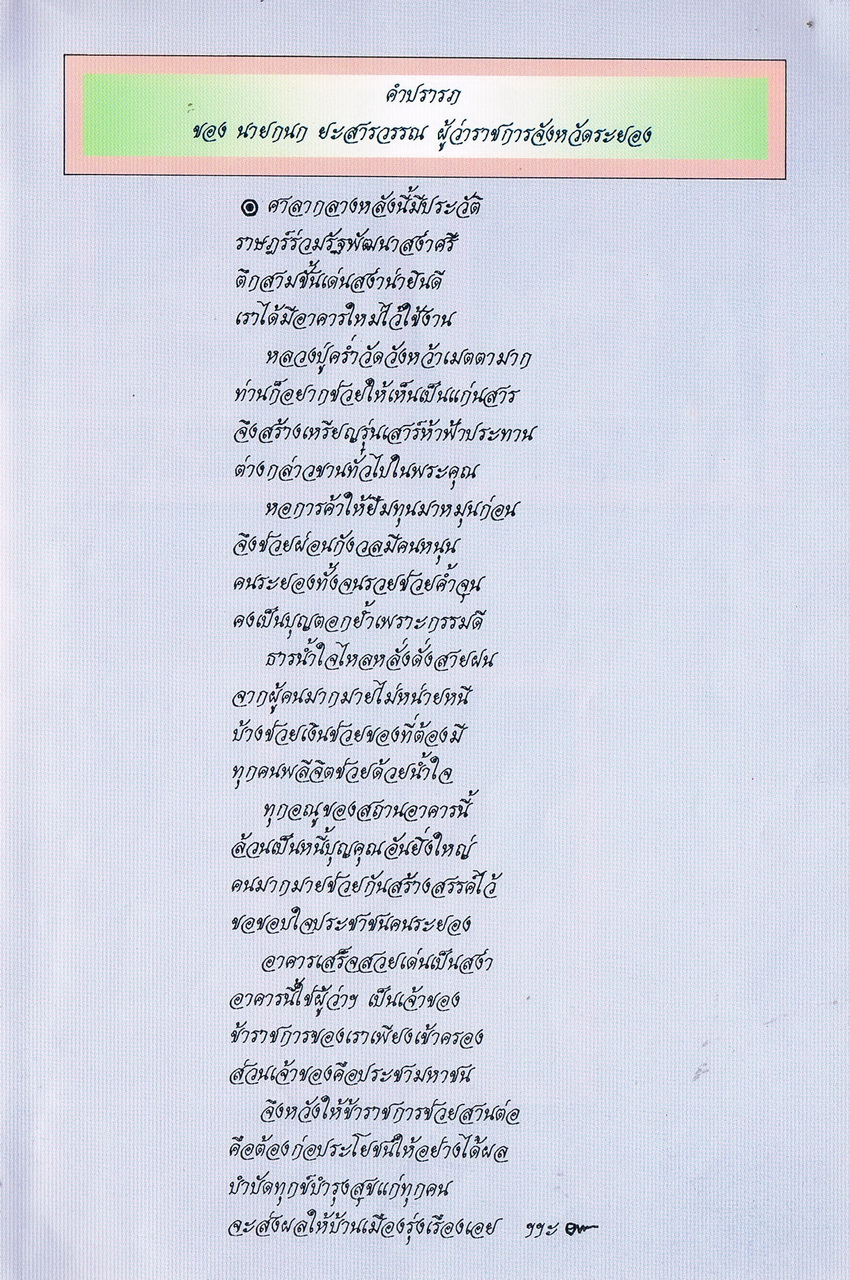 คำปรารภ
ของ นายกนก ยะสารวรรณ ผู้ว่าราชการจังหวัดระยอง
๏ ศาลากลางหลังนี้มีประวัติ
ราษฎร์ร่วมรัฐพัฒนาสง่าศรี
ตึกสามชั้นเด่นสง่าน่ายินดี
เราได้มีอาคารใหม่ไว้ใช้งาน
หลวงปู่คร่ำวัดวังหว้าเมตตามาก
ท่านก็อยากช่วยให้เห็นเป็นแก่นสาร
จึงสร้างเหรียญรุ่นเสาร์ห้าฟ้าประทาน
ต่างกล่าวขานทั่วไปในพระคุณ
หอการค้าให้ยืมทุนมาหมุนก่อน
จึงช่วยผ่อนกังวลมีคนหนุน
คนระยองทั้งจนรวยช่วยค้ำจุน
คงเป็นบุญตอกย้ำเพราะกรรมดี
ธารน้ำใจไหลหลั่งดั่งสายฝน
จากผู้คนมากมายไม่หน่ายหนี
บ้างช่วยเงินช่วยของที่ต้องมี
ทุกคนพลีจิตช่วยด้วยน้ำใจ
ทุกอณูของสถานอาคารนี้
ล้วนเป็นหนี้บุญคุณอันยิ่งใหญ่
คนมากมายช่วยกันสร้างสรรค์ไว้
ขอขอบใจประชาชนคนระยอง
อาคารเสร็จสวยเด่นเป็นสง่า
อาคารนี้ใช่ผู้ว่าฯ เป็นเจ้าของ
ข้าราชการของเราเพียงเข้าครอง
ส่วนเจ้าของคือประชามหาชน
จึงหวังให้ข้าราชการช่วยสานต่อ
คือต้องก่อประโยชน์ให้อย่างได้ผล
บำบัดทุกข์บำรุงสุขแก่ทุกคน
จะส่งผลให้บ้านเมืองรุ่งเรืองเอย ฯฯะ ๛